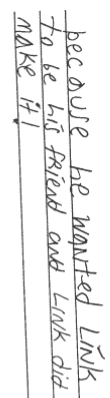 because he wanted Link
to be his friend and Link did
make it!